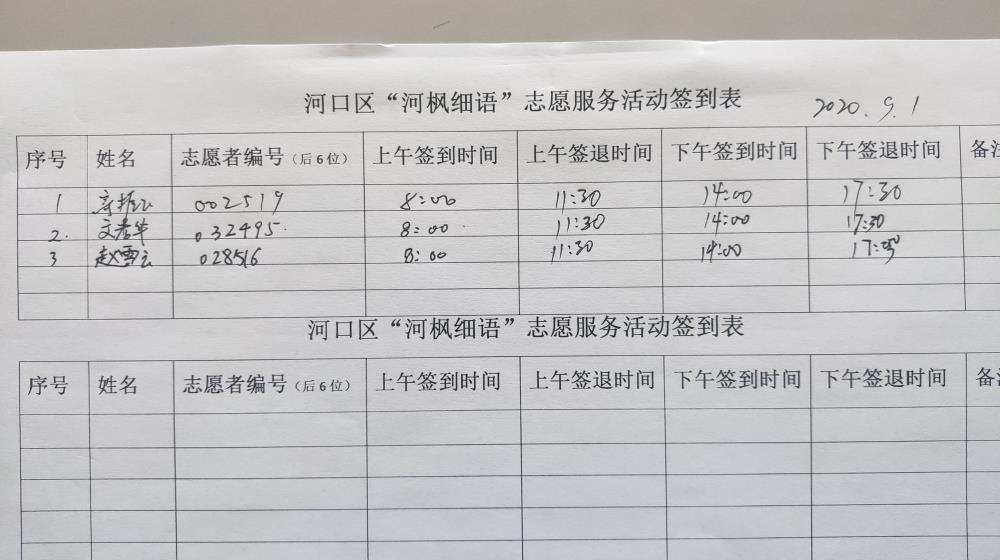 河口区“河枫细语”志愿服务活动签到表 2020.9.1
序号 姓名 志愿者编号（后6位） 上午签到时间 上午签退时间 下午签到时间 下午签退时间 备注
1 002519 8:00 11:30 14:00 17:30
2. 032495 8:00 11:30 14:00 17:30
3 赵雪云 028516 8:00 11:30 14:00 17:30
河口区“河枫细语”志愿服务活动签到表
序号 姓名 志愿者编号（后6位） 上午签到时间 上午签退时间 下午签到时间 下午签退时间 备注